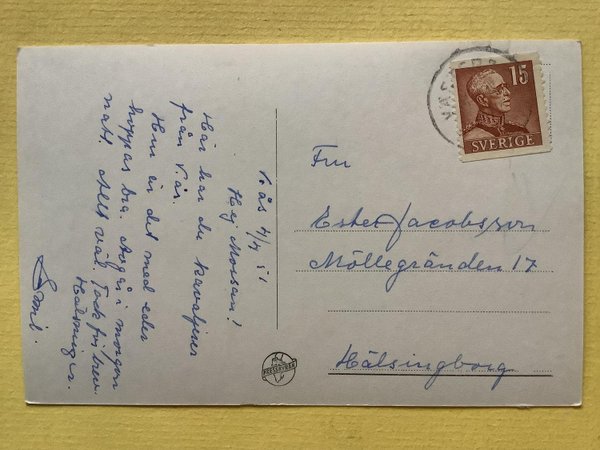 V.ås 4/4 51
Hej Morsan!
Här har du kavaljer
från V.ås.
Hur är det med eder
hoppas bra. Avgår i morgon
natt. Allt väl. Tack för brev.
Hälsningar.
Emil.
VÄSTERÅS
15
SVERIGE
Fru
Ester Jacobsson
Möllegränden 17
Hälsingborg